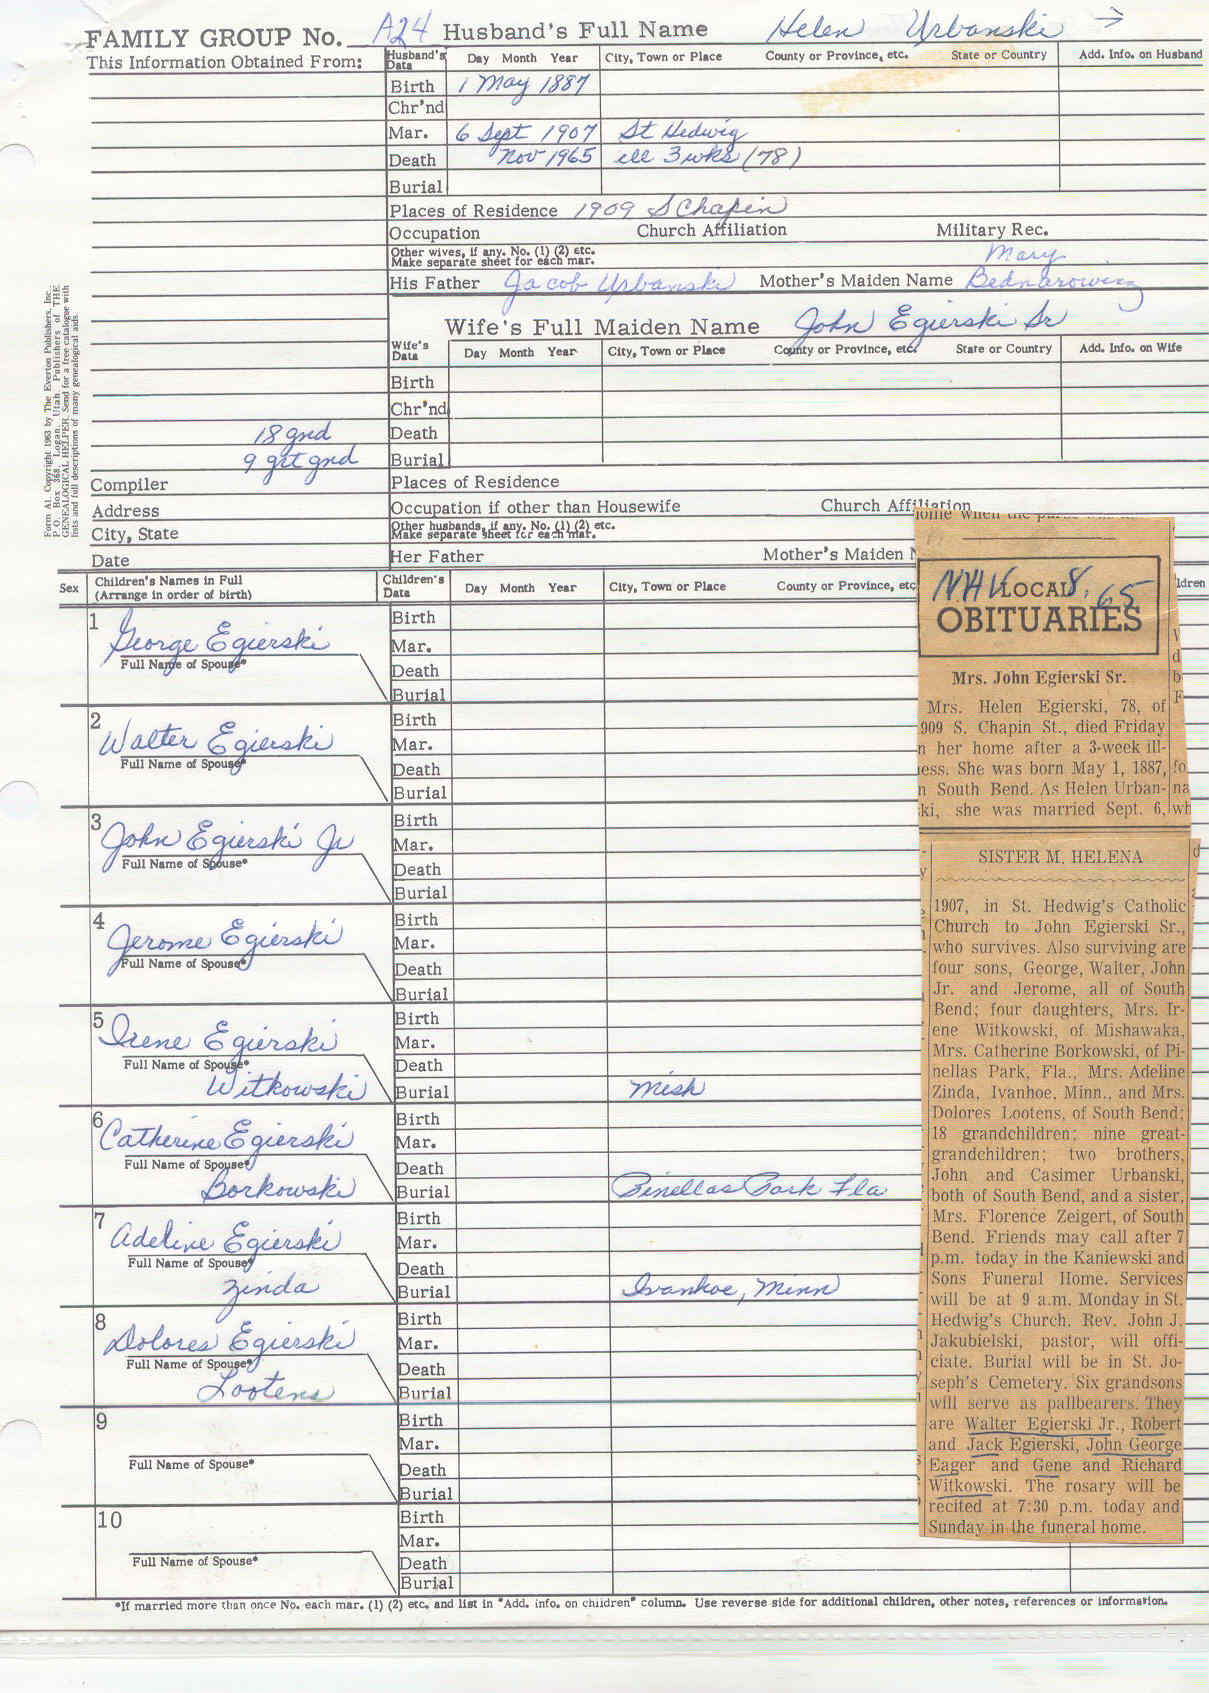 FAMILY GROUP No. A24 Husband's Full Name Helen Urbanski →
This Information Obtained From:
Husband's Data Day Month Year City, Town or Place County or Province, etc. State or Country Add. Info. on Husband
Birth 1 May 1887
Chr'nd
Mar. 6 Sept 1907 St Hedwig
Death Nov 1965 ill 3 wks (78)
Burial
Places of Residence 1909 S Chapin
Occupation Church Affiliation Military Rec.
Other wives, if any. No. (1) (2) etc.
Make separate sheet for each mar.
Mary
His Father Jacob Urbanski Mother's Maiden Name Bednarowicz
Wife's Full Maiden Name John Egierski Sr
Wife's Data Day Month Year City, Town or Place County or Province, etc. State or Country Add. Info. on Wife
Birth
Chr'nd
18 gnd Death
9 grt gnd Burial
Compiler Places of Residence
Address Occupation if other than Housewife Church Affiliation
City, State Other husbands, if any. No. (1) (2) etc.
Make separate sheet for each mar.
Date Her Father Mother's Maiden N
Form A1. Copyright 1963 by The Everton Publishers, Inc.
P. O. Box 368, Logan, Utah. Publishers of THE
GENEALOGICAL HELPER. Send for a free catalogue with
lists and full descriptions of many genealogical aids.
Sex Children's Names in Full
(Arrange in order of birth)
Children's Data Day Month Year City, Town or Place County or Province, etc ldren
1 Birth
George Egierski Mar.
Full Name of Spouse* Death
Burial
2 Birth
Walter Egierski Mar.
Full Name of Spouse* Death
Burial
3 Birth
John Egierski Jr Mar.
Full Name of Spouse* Death
Burial
4 Birth
Jerome Egierski Mar.
Full Name of Spouse* Death
Burial
5 Birth
Irene Egierski Mar.
Full Name of Spouse* Death
Witkowski Burial Mish
6 Birth
Catherine Egierski Mar.
Full Name of Spouse* Death
Borkowski Burial Pinellas Park Fla
7 Birth
Adeline Egierski Mar.
Full Name of Spouse* Death
Zinda Burial Ivanhoe, Minn
8 Birth
Dolores Egierski Mar.
Full Name of Spouse* Death
Lootens Burial
9 Birth
Mar.
Full Name of Spouse* Death
Burial
10 Birth
Mar.
Full Name of Spouse* Death
Burial
*If married more than once No. each mar. (1) (2) etc. and list in "Add. info. on children" column. Use reverse side for additional children, other notes, references or information.
LOCAL 8, 65
OBITUARIES
Mrs. John Egierski Sr.
Mrs. Helen Egierski, 78, of
909 S. Chapin St., died Friday
n her home after a 3-week ill-
ess. She was born May 1, 1887,
n South Bend. As Helen Urban-
ki, she was married Sept. 6,
SISTER M. HELENA
1907, in St. Hedwig's Catholic
Church to John Egierski Sr.,
who survives. Also surviving are
four sons, George, Walter, John
Jr. and Jerome, all of South
Bend; four daughters, Mrs. Ir-
ene Witkowski, of Mishawaka,
Mrs. Catherine Borkowski, of Pi-
nellas Park, Fla., Mrs. Adeline
Zinda, Ivanhoe, Minn., and Mrs.
Dolores Lootens, of South Bend;
18 grandchildren; nine great-
grandchildren; two brothers,
John and Casimer Urbanski,
both of South Bend, and a sister,
Mrs. Florence Zeigert, of South
Bend. Friends may call after 7
p.m. today in the Kaniewski and
Sons Funeral Home. Services
will be at 9 a.m. Monday in St.
Hedwig's Church. Rev. John J.
Jakubielski, pastor, will offi-
ciate. Burial will be in St. Jo-
seph's Cemetery. Six grandsons
will serve as pallbearers. They
are Walter Egierski Jr., Robert
and Jack Egierski, John George
Eager and Gene and Richard
Witkowski. The rosary will be
recited at 7:30 p.m. today and
Sunday in the funeral home.